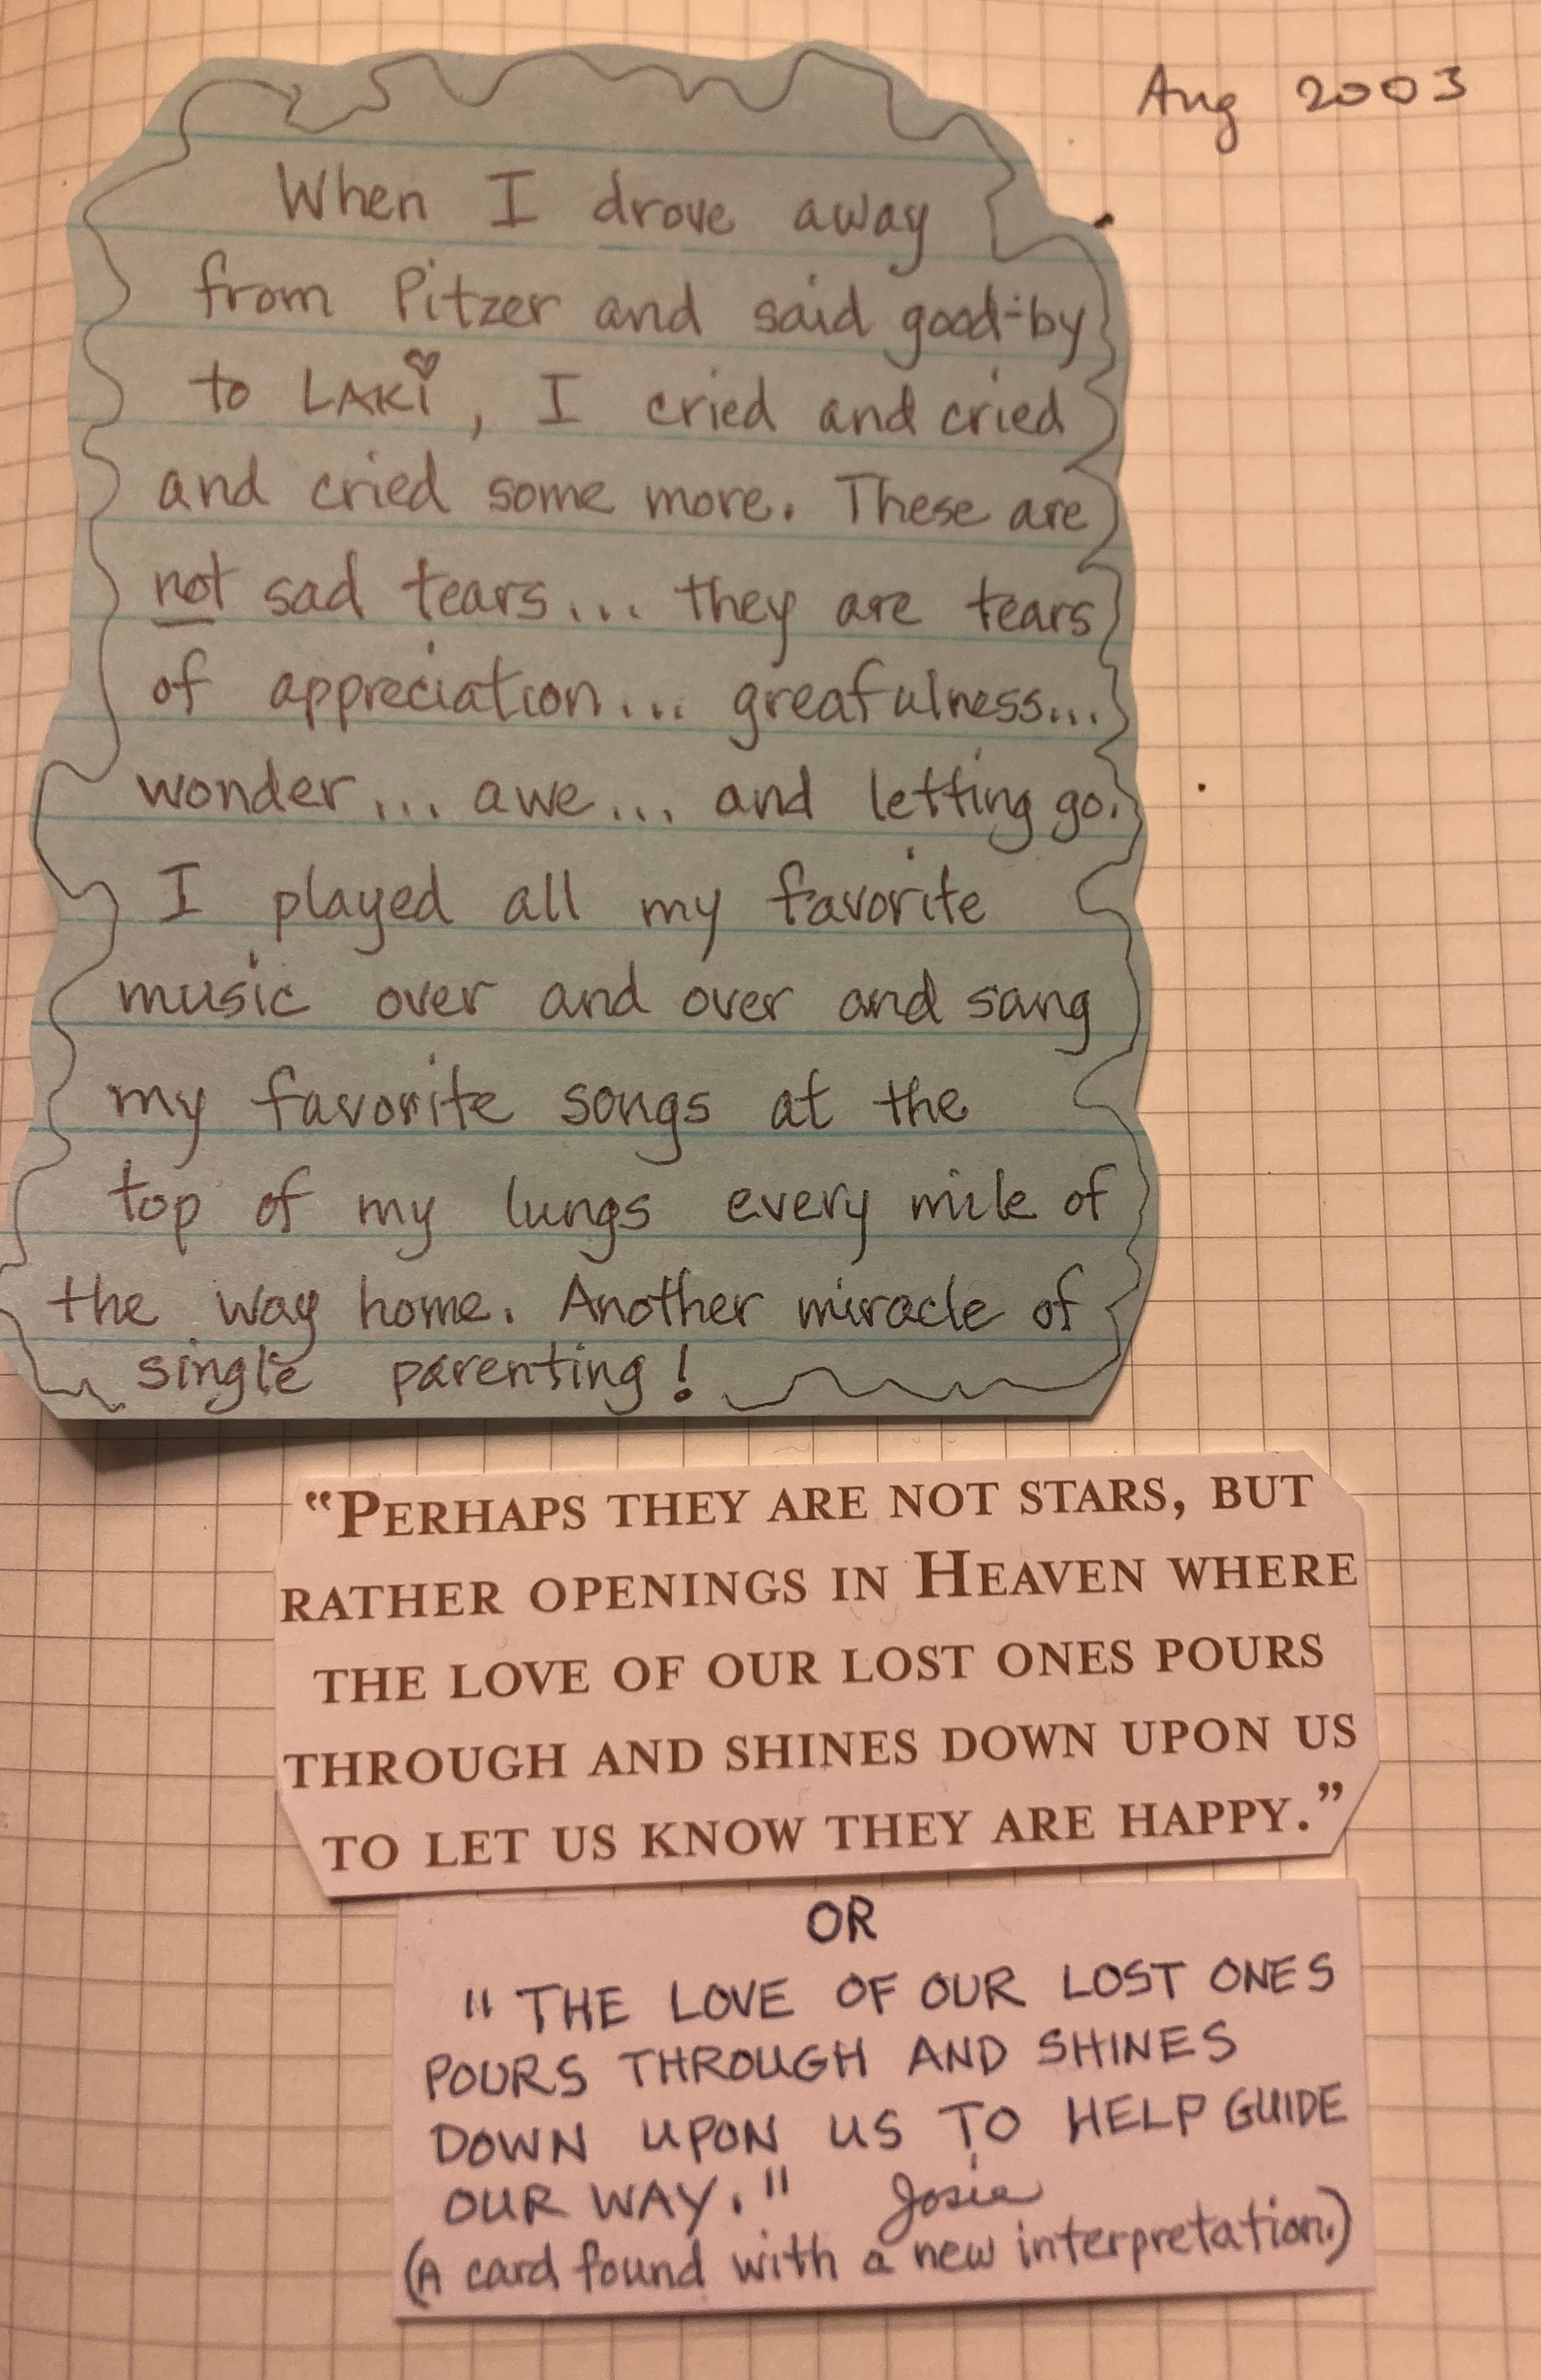 Aug 2003
When I drove away
from Pitzer and said good-by
to LAKi, I cried and cried
and cried some more. These are
not sad tears... they are tears
of appreciation... greafulness...
wonder... awe... and letting go.
I played all my favorite
music over and over and sang
my favorite songs at the
top of my lungs every mile of
the way home. Another miracle of
single parenting!
“PERHAPS THEY ARE NOT STARS, BUT
RATHER OPENINGS IN HEAVEN WHERE
THE LOVE OF OUR LOST ONES POURS
THROUGH AND SHINES DOWN UPON US
TO LET US KNOW THEY ARE HAPPY.”
OR
"THE LOVE OF OUR LOST ONES
POURS THROUGH AND SHINES
DOWN UPON US TO HELP GUIDE
OUR WAY." Josie
(A card found with a new interpretation.)